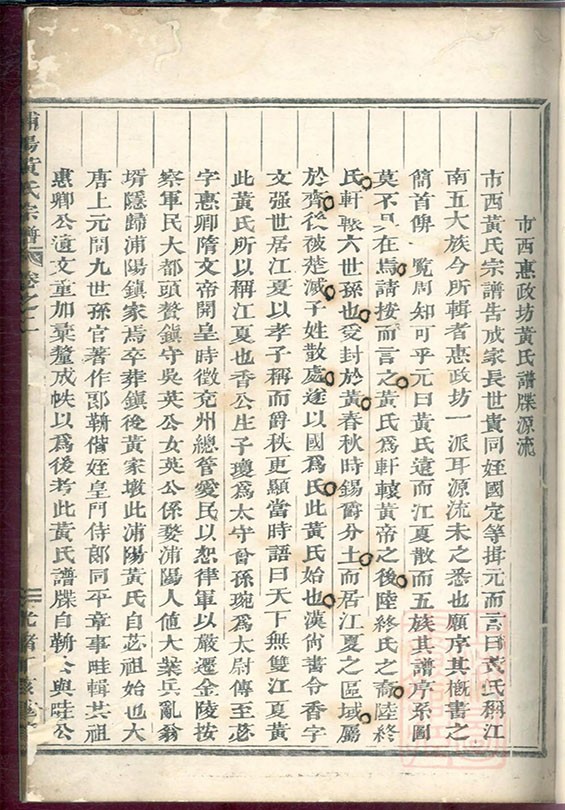 市西惠政坊黃氏譜牒源流
市西黃氏宗譜告成家長世貴同姪國定等揖元而言曰黃氏稱江
南五大族今所輯者惠政坊一派耳源流未之悉也願序其概書之
簡首俾一覽周知可乎元曰黃氏遠而江夏散而五族其譜序系圖
莫不具在焉請按而言之黃氏爲軒轅黃帝之後陸終氏之裔陸終
氏軒轅六世孫也受封於黃春秋時錫爵分土而居江夏之區域屬
於齊後被楚滅子姓散處遂以國爲氏此黃氏始也漢尙書令香字
文强世居江夏以孝子稱而爵秩更顯當時語曰天下無雙江夏黃
此黃氏所以稱江夏也香公生子瓊爲太守曾孫琬爲太尉傳至苾
字惠卿隋文帝開皇時徵兖州總管愛民以恕律軍以嚴遷金陵按
察軍民大都頭贅鎭守吳英公女英公係婺浦陽人値大業兵亂翁
壻隱歸浦陽鎭家焉卒葬鎭後黃家墩此浦陽黃氏自苾祖始也大
唐上元間九世孫官著作郎靳偕姪皇門侍郎同平章事畦輯其祖
惠卿公遺文重加彙釐成帙以爲後考此黃氏譜牒自靳公與畦公
浦陽黃氏宗譜 卷之一
光緒